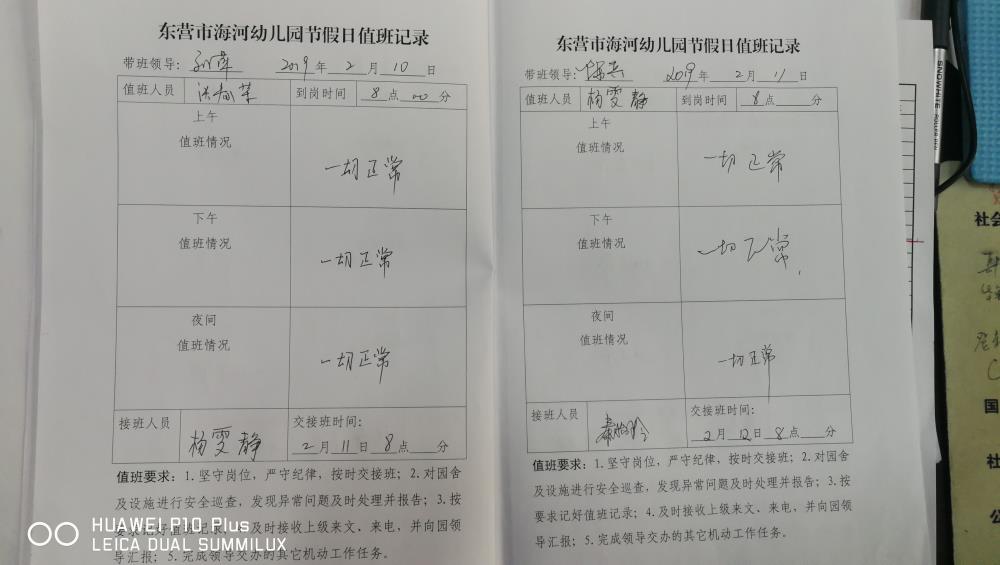 东营市海河幼儿园节假日值班记录
带班领导： 2019年2月10日
值班人员 到岗时间 8点00分
上午
值班情况
一切正常
下午
值班情况
一切正常
夜间
值班情况
一切正常
接班人员 杨雯静
交接班时间：
2月11日8点 分
值班要求：1.坚守岗位，严守纪律，按时交接班；2.对园舍
及设施进行安全巡查，发现异常问题及时处理并报告；3.按
要求记好值班记录；4.及时接收上级来文、来电，并向园领
导汇报；5.完成领导交办的其它机动工作任务。
东营市海河幼儿园节假日值班记录
带班领导： 2019年2月11日
值班人员 杨雯静 到岗时间 8点 分
上午
值班情况
一切正常
下午
值班情况
一切正常
夜间
值班情况
一切正常
接班人员
交接班时间：
2月12日8点 分
值班要求：1.坚守岗位，严守纪律，按时交接班；2.对园舍
及设施进行安全巡查，发现异常问题及时处理并报告；3.按
要求记好值班记录；4.及时接收上级来文、来电，并向园领
导汇报；5.完成领导交办的其它机动工作任务。
SNOWHITE
社会
国
社
公
HUAWEI P10 Plus
LEICA DUAL SUMMILUX